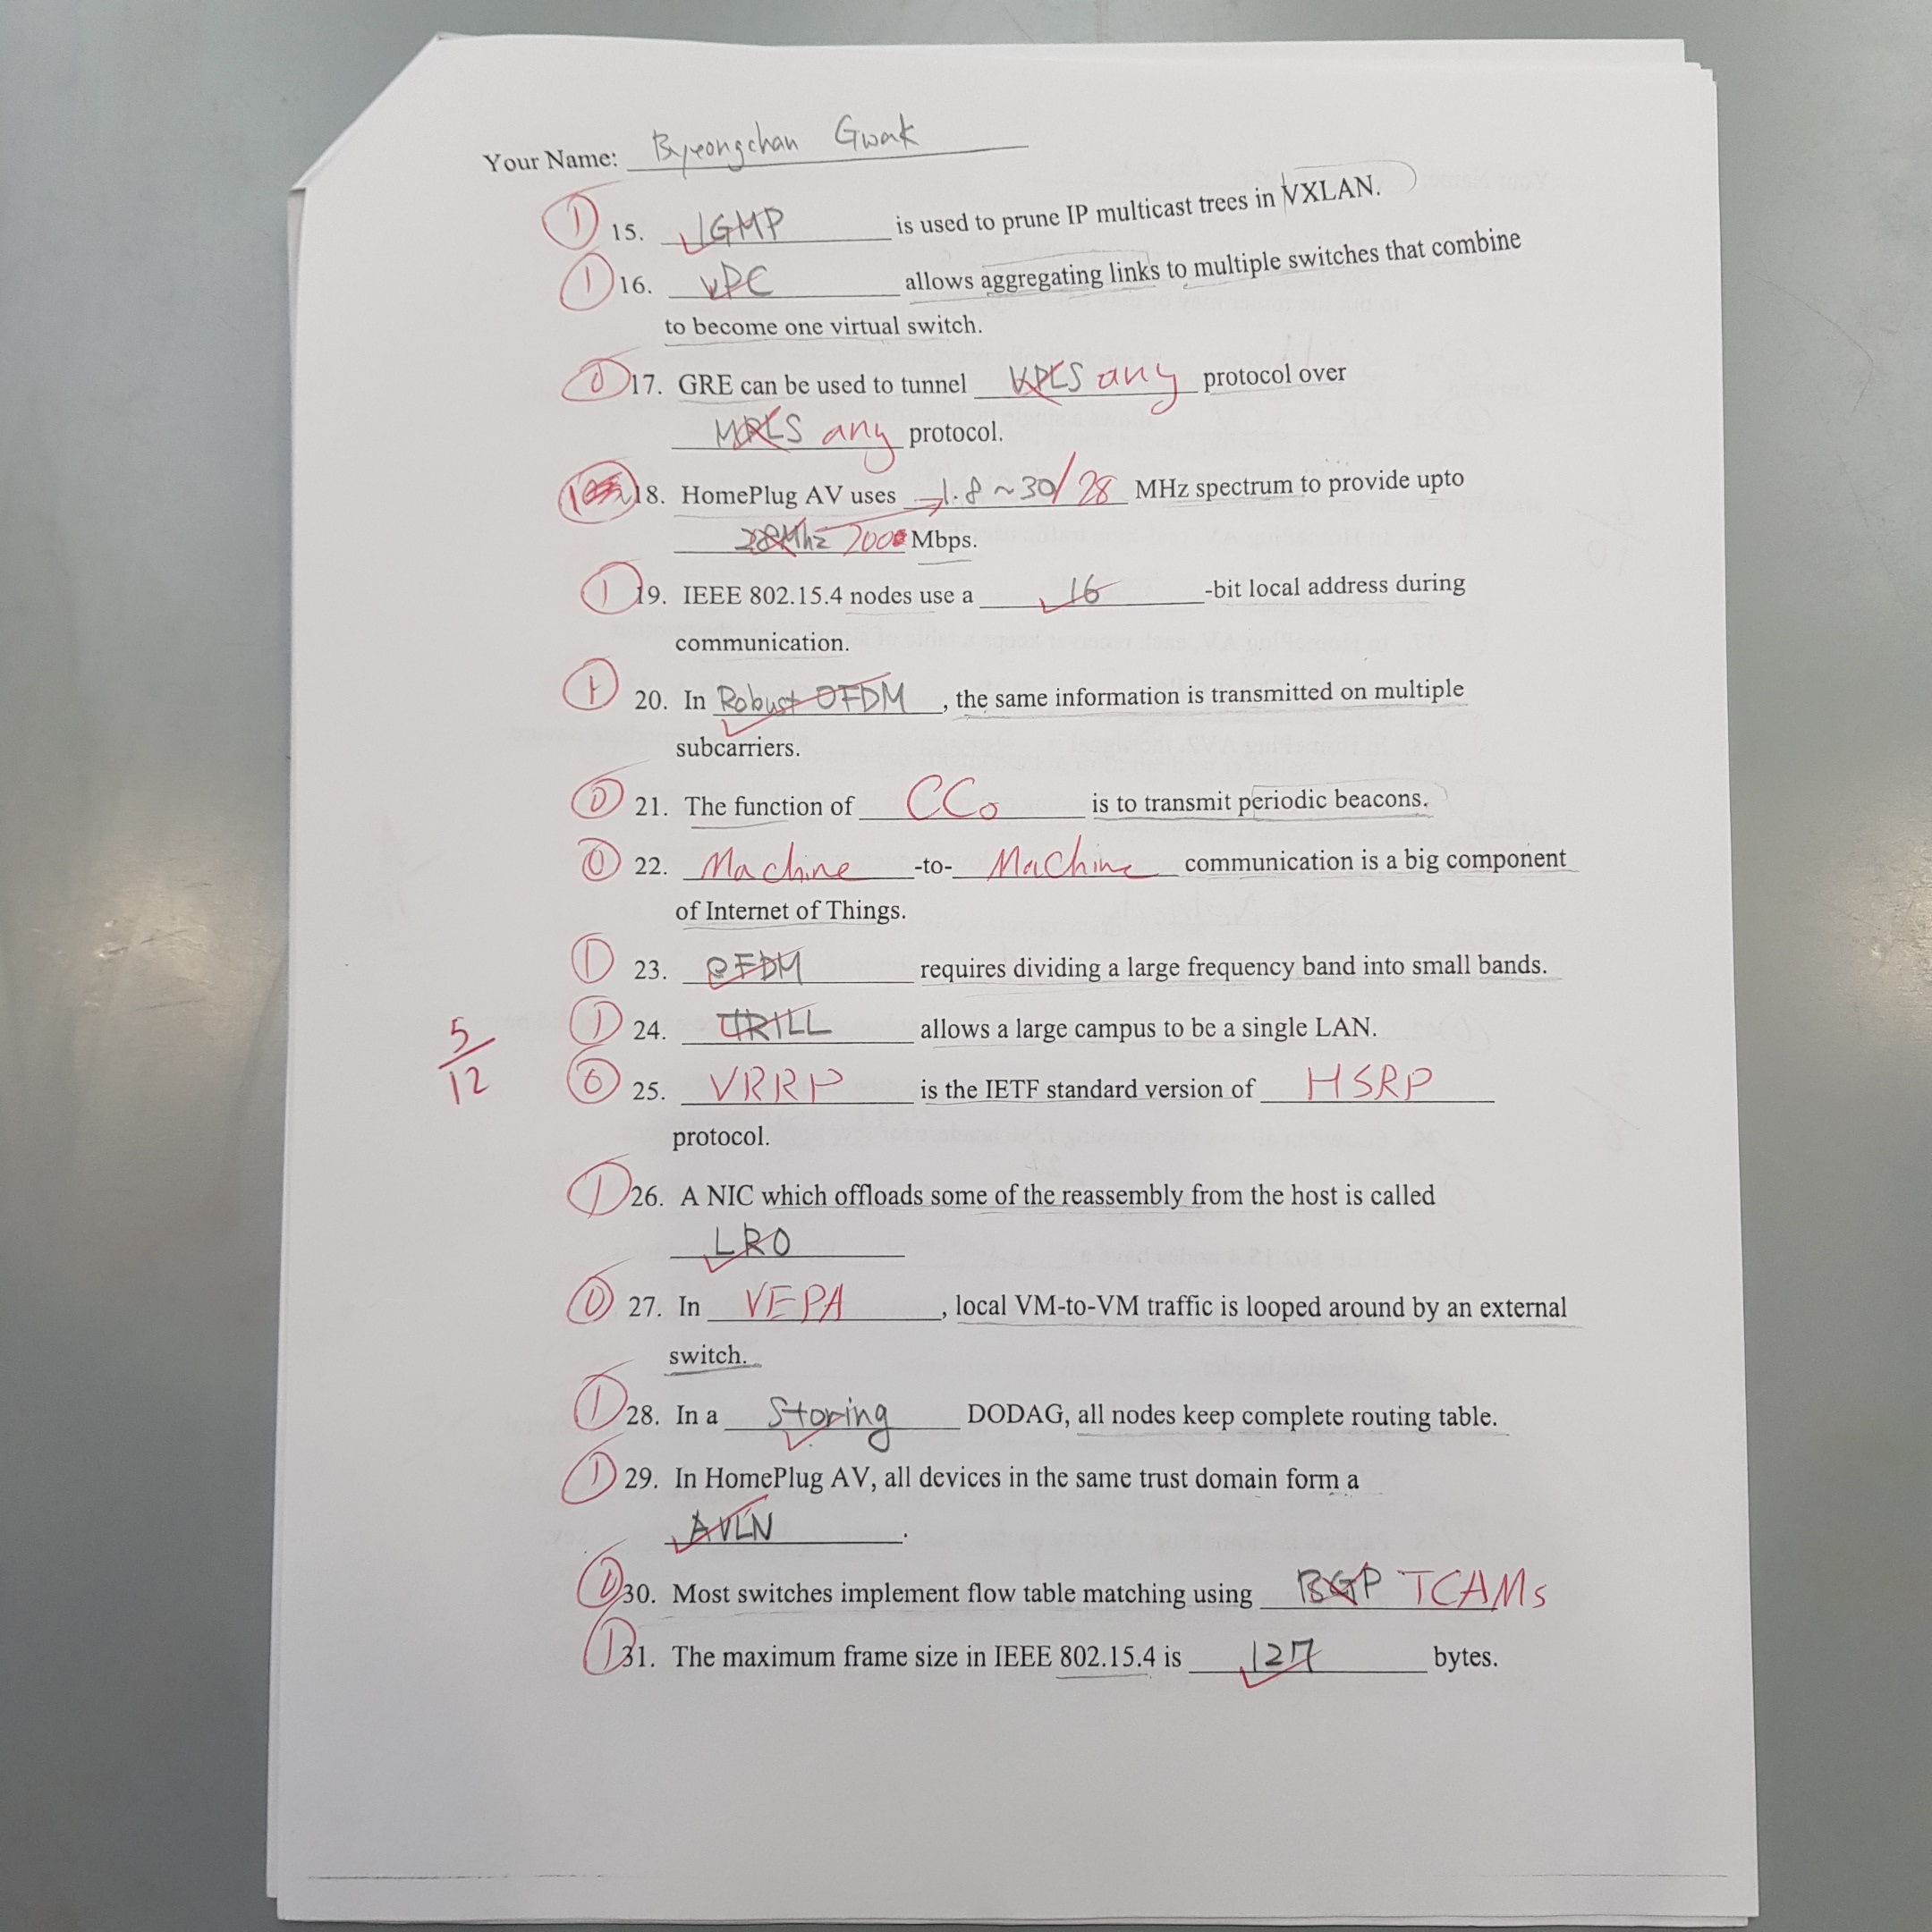 Your Name: Byeongchan Gwak
1 15. IGMP is used to prune IP multicast trees in VXLAN.
1 16. vPC allows aggregating links to multiple switches that combine
to become one virtual switch.
0 17. GRE can be used to tunnel VPLS any protocol over
MPLS any protocol.
1 18. HomePlug AV uses 1.8 ~ 30/28 MHz spectrum to provide upto
28Mhz 200 Mbps.
1 19. IEEE 802.15.4 nodes use a 16 -bit local address during
communication.
1 20. In Robust OFDM, the same information is transmitted on multiple
subcarriers.
0 21. The function of CCo is to transmit periodic beacons.
0 22. Machine -to- Machine communication is a big component
of Internet of Things.
1 23. OFDM requires dividing a large frequency band into small bands.
1 24. TRILL allows a large campus to be a single LAN.
5/12
0 25. VRRP is the IETF standard version of HSRP
protocol.
1 26. A NIC which offloads some of the reassembly from the host is called
LRO
0 27. In VEPA, local VM-to-VM traffic is looped around by an external
switch.
1 28. In a Storing DODAG, all nodes keep complete routing table.
1 29. In HomePlug AV, all devices in the same trust domain form a
AVLN.
0 30. Most switches implement flow table matching using BGP TCAMs
1 31. The maximum frame size in IEEE 802.15.4 is 127 bytes.